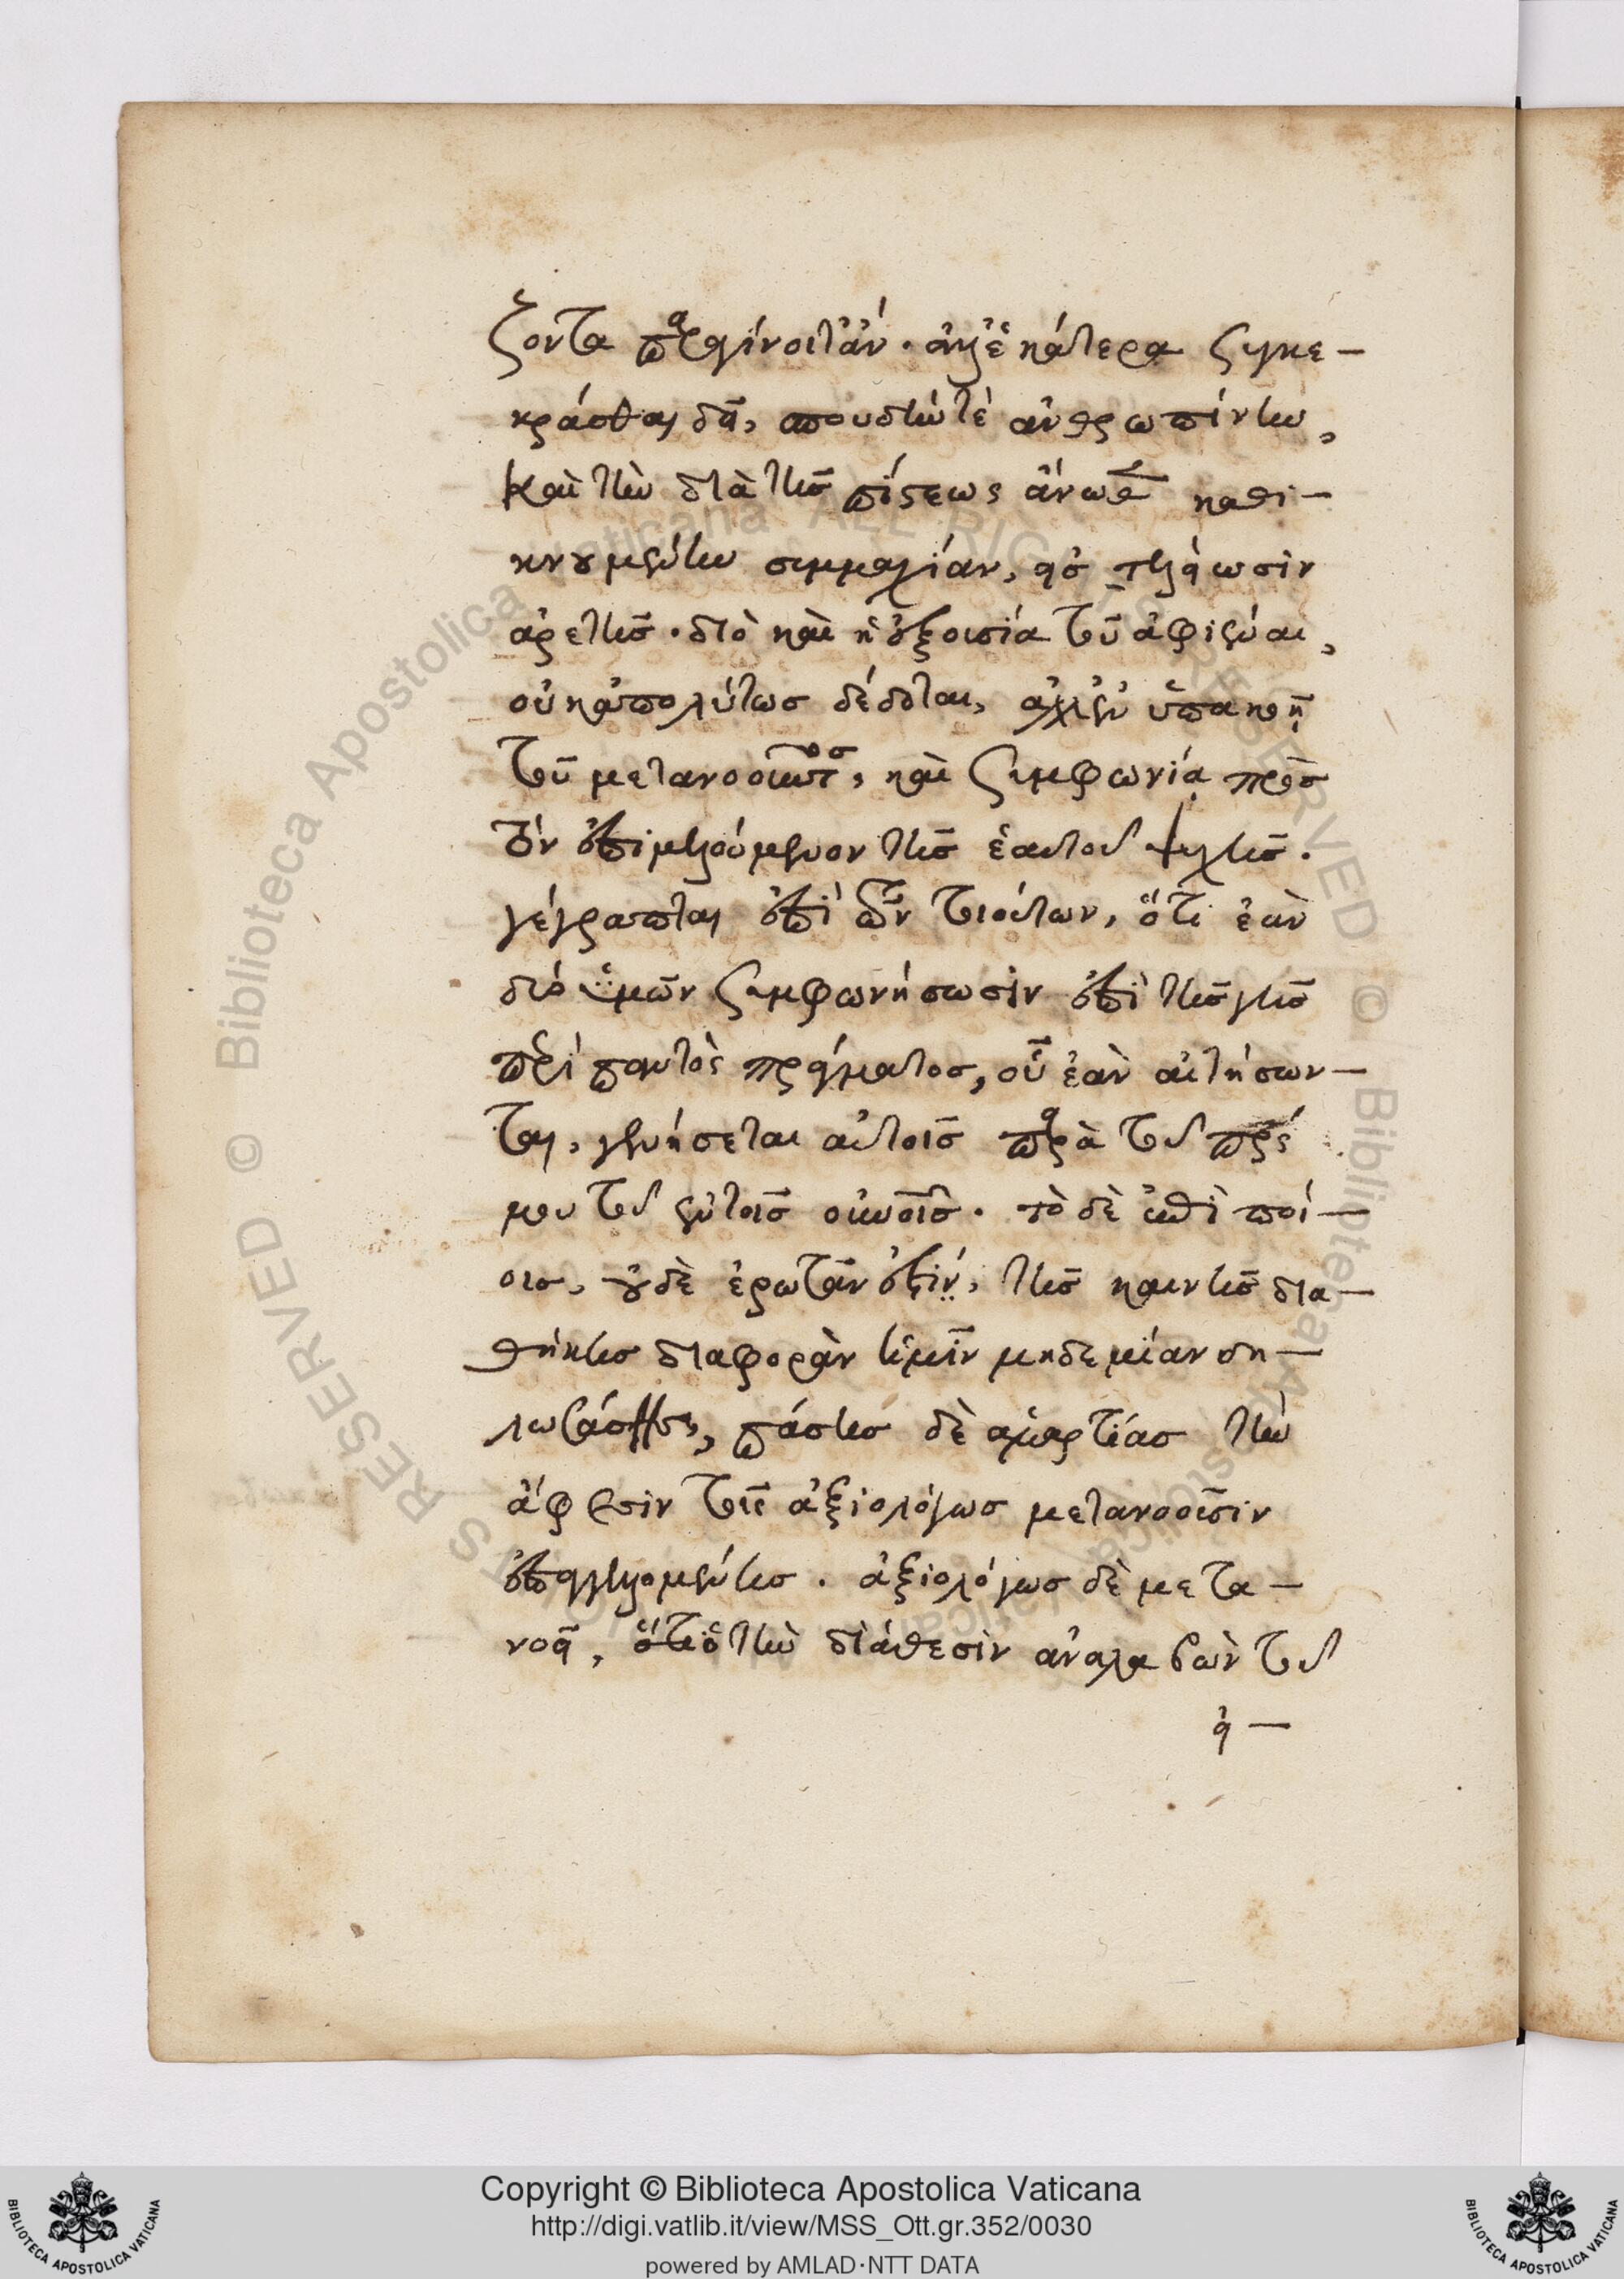 ζοντα παραγίνοιτ' ἄν. ἀλλ' ἑκάτερα συγκε—
κράσθαι δεῖ, σπουδήν τὲ ἀνθρωπίνην,
καὶ τὴν διὰ τῆς πίστεως ἄνωθεν καθι—
κνουμένην συμμαχίαν, εἰς τελείωσιν
ἀρετῆς. διὸ καὶ ἡ ἐξουσία τοῦ ἀφιέναι,
οὐκ ἀπολύτως δέδοται, ἀλλ' ἐν ὑπακοῇ
τοῦ μετανοοῦντος, καὶ συμφωνίᾳ πρὸς
τὸν ἐπιμελούμενον τῆς ἑαυτοῦ ψυχῆς.
γέγραπται ἐπὶ τῶν τοιούτων, ὅτι ἐὰν
δύο ὑμῶν συμφωνήσωσιν ἐπὶ τῆς γῆς
περὶ παντὸς πράγματος, οὗ ἐὰν αἰτήσων—
ται, γενήσεται αὐτοῖς παρὰ τοῦ πρς
μου τοῦ ἐν τοῖς οὐνοῖς. τὸ δὲ ἐπὶ ποί—
οις, οὐδὲ ἐρωτᾶν ἐστιν, τῆς καινῆς δια—
θήκης διαφορὰν ἡμῖν μηδεμίαν δη—
λωσάσης, πάσης δὲ ἁμαρτίας τὴν
ἄφεσιν τοῖς ἀξιολόγως μετανοοῦσιν
ἐπαγγελομένης. ἀξιολόγως δὲ μετα—
νοεῖ, ὅτι ὁ τὴν διάθεσιν ἀναλαβὼν τοῦ
εἰ—
Copyright © Biblioteca Apostolica Vaticana
http://digi.vatlib.it/view/MSS_Ott.gr.352/0030
powered by AMLAD·NTT DATA
BIBLIOTECA APOSTOLICA VATICANA
BIBLIOTECA APOSTOLICA VATICANA